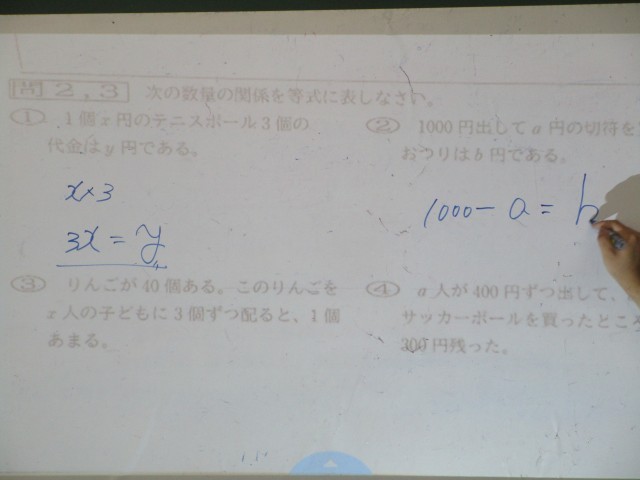 問 2,3 次の数量の関係を等式に表しなさい。
① 1個x円のテニスボール3個の
代金はy円である。
x×3
3x=y
② 1000円出してa円の切符を
おつりはb円である。
1000-a=b
③ りんごが40個ある。このりんごを
x人の子どもに3個ずつ配ると、1個
あまる。
④ a人が400円ずつ出して、
サッカーボールを買ったところ
300円残った。